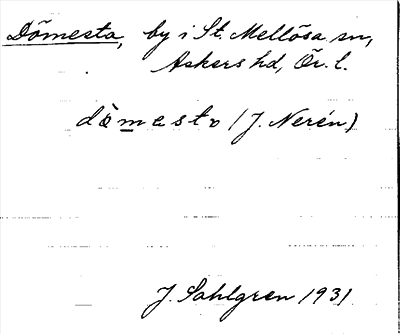 Dömesta, by i St. Mellösa sn,
Askers hd, Ör. l.
dòmesta (J. Nerén)
J. Sahlgren 1931